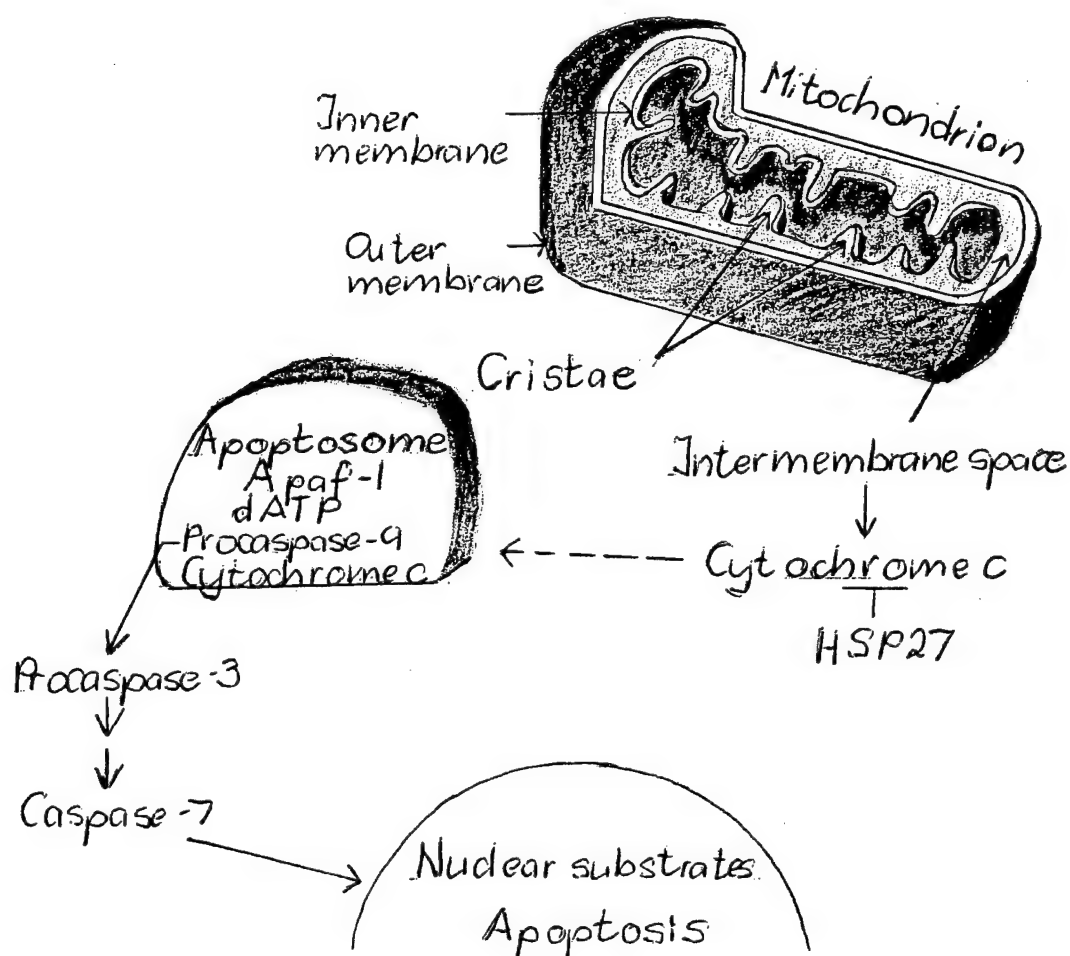 Mitochondrion
Inner
membrane
Outer
membrane
Cristae
Apoptosome
Apaf-1
dATP
Procaspase-9
Cytochrome c
Intermembrane space
Cytochrome c
HSP27
Procaspase-3
Caspase-7
Nuclear substrates
Apoptosis